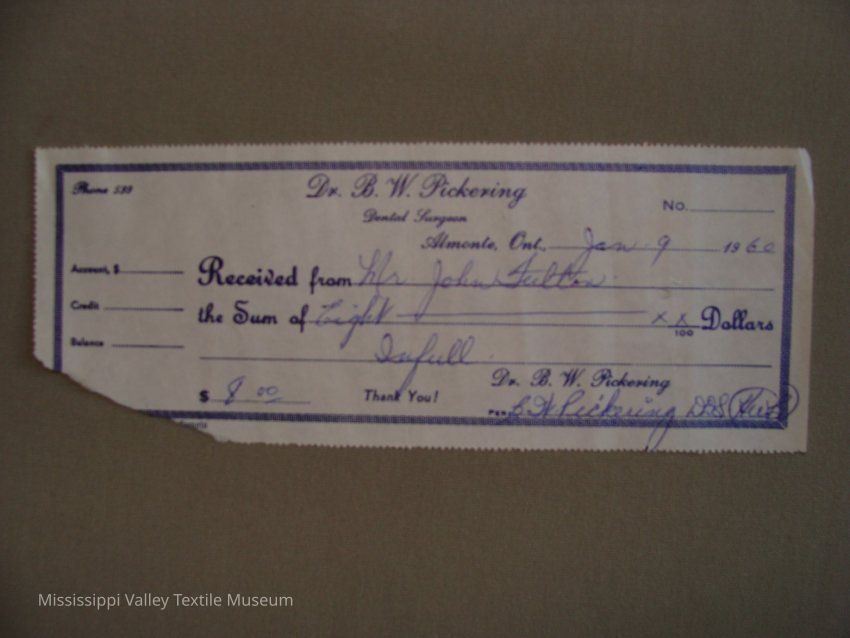 Phone 539
Dr. B. W. Pickering
Dental Surgeon
No.
Almonte, Ont., Jan 9 1960
Account, $
Received from Mr John Fulton
Credit
the Sum of Eight x x/100 Dollars
Balance
In full
Dr. B. W. Pickering
$ 8.00 Thank You!
PER Pickering DDS
Mississippi Valley Textile Museum